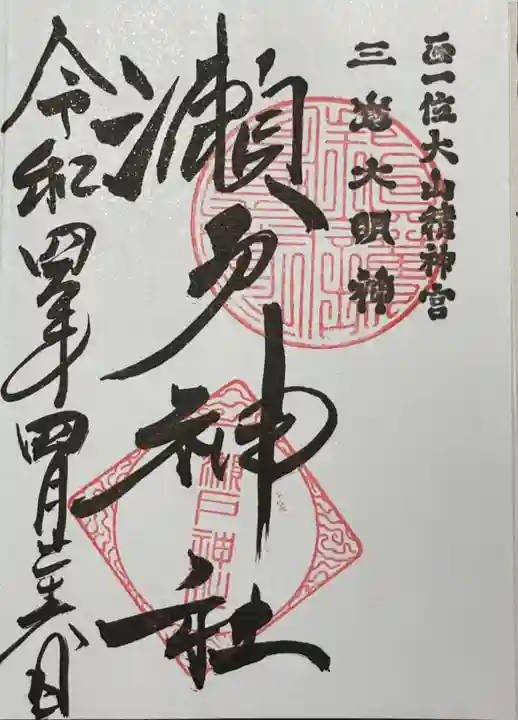 正一位大山積神宮
三嶋大明神
瀬戸神社
令和四年四月廿六日
瀬戸神社